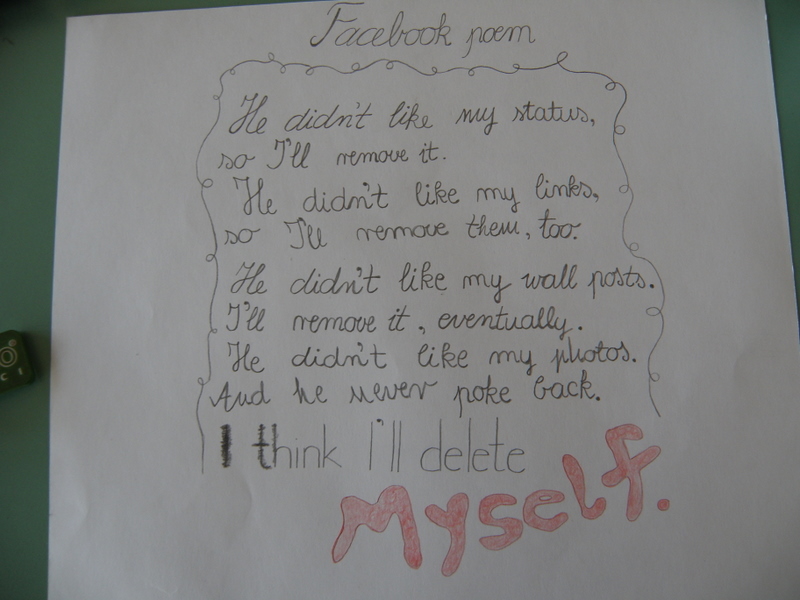 Facebook poem
He didn't like my status,
so I'll remove it.
He didn't like my links,
so I'll remove them, too.
He didn't like my wall posts.
I'll remove it, eventually.
He didn't like my photos.
And he never poke back.
I think I'll delete
Myself.